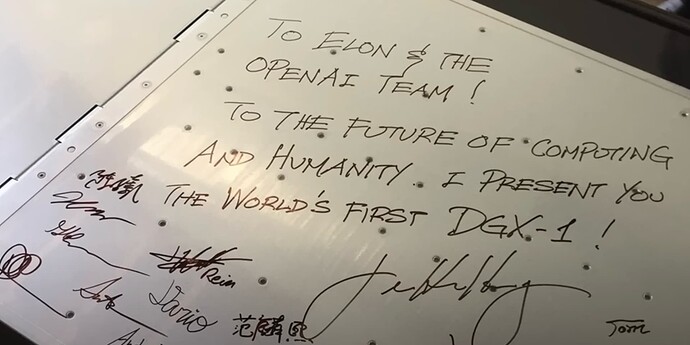 TO ELON & THE
OPENAI TEAM !
TO THE FUTURE OF COMPUTING
AND HUMANITY. I PRESENT YOU
THE WORLD'S FIRST DGX-1 !
Rein
Dario
范麟熙
Tom